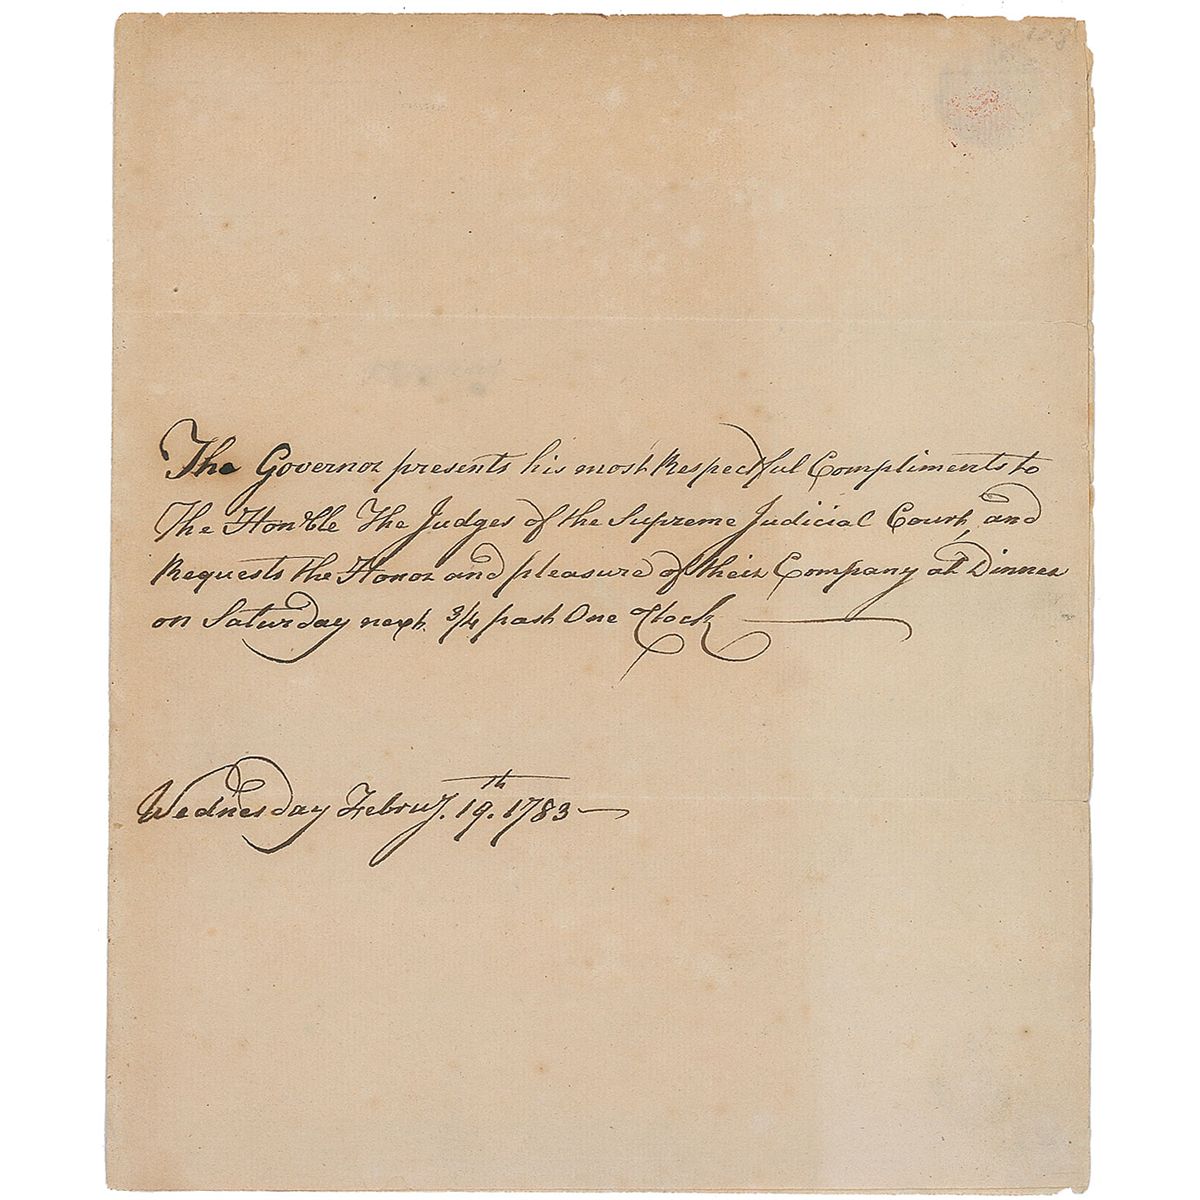 The Governor presents his most Respectful Compliments to
The Hon'ble The Judges of the Supreme Judicial Court, and
Requests the Honor and pleasure of their Company at Dinner
on Saturday next. 3/4 past One o'Clock
Wednesday Febru'y. 19th. 1783